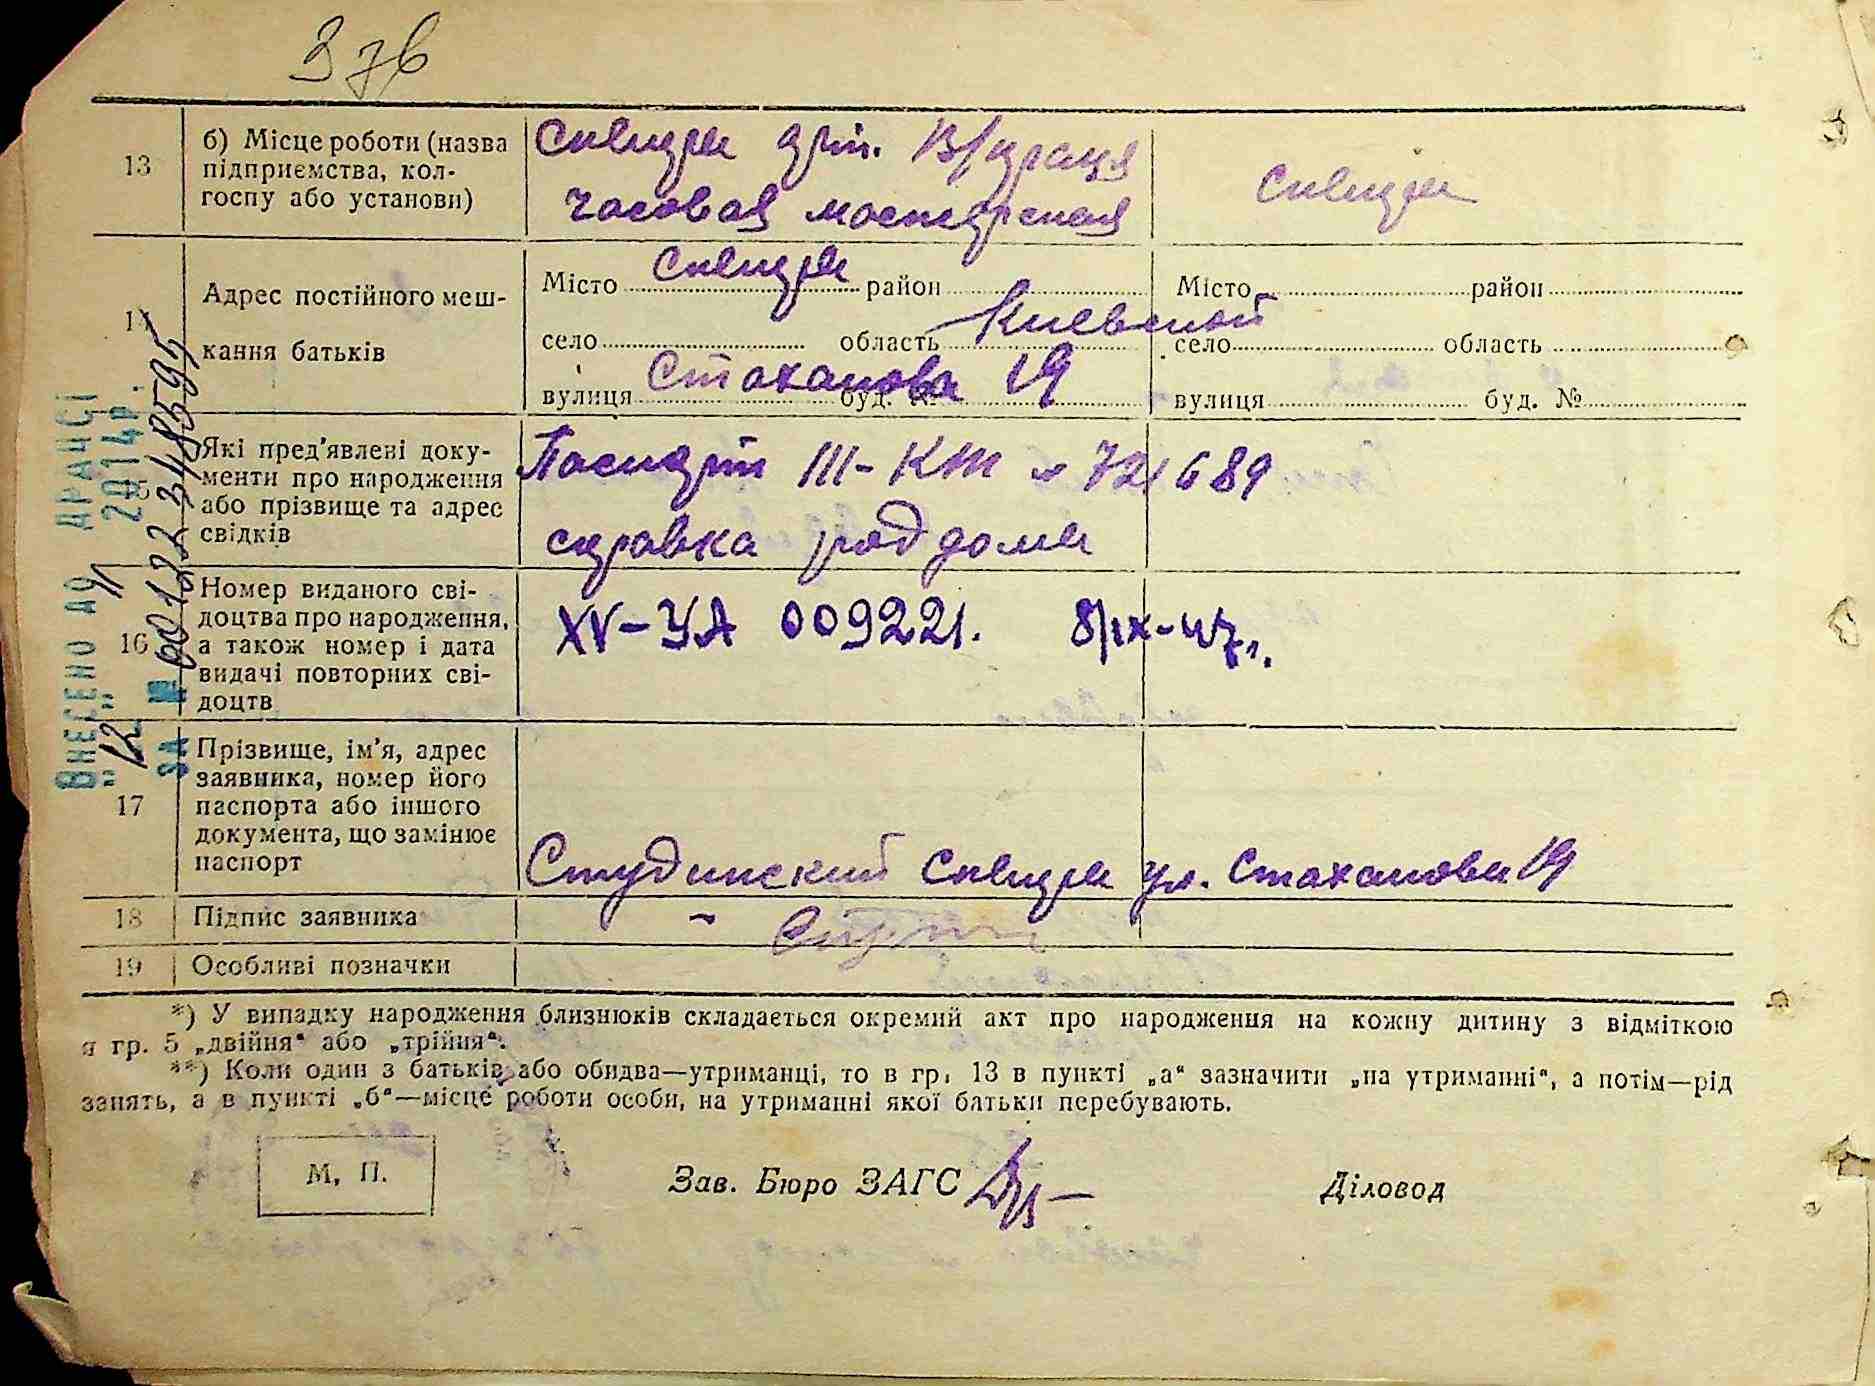 376
13
б) Місце роботи (назва підприємства, колгоспу або установи)
Сквира арт. В/праця
часовая мастерская
Сквира
14
Адрес постійного мешкання батьків
Місто Сквира район
село область Киевской
вулиця Стаханова буд. № 19
Місто район
село область
вулиця буд. №
15
Які пред'явлені документи про народження або прізвище та адрес свідків
Паспорт III-КЖ № 721689
справка роддома
16
Номер виданого свідоцтва про народження, а також номер і дата видачі повторних свідоцтв
XV-УА 009221. 8/IX-47г.
17
Прізвище, ім'я, адрес заявника, номер його паспорта або іншого документа, що замінює паспорт
Студинский Сквира ул. Стаханова 19
18
Підпис заявника
19
Особливі позначки
ВНЕСЕНО ДО ДРАЦСІ
"12" 11 2014р.
ЗА № 00122348595
*) У випадку народження близнюків складається окремий акт про народження на кожну дитину з відміткою
я гр. 5 „двійня“ або „трійня“.
**) Коли один з батьків або обидва—утриманці, то в гр. 13 в пункті „а“ зазначити „на утриманні“, а потім—рід
занять, а в пункті „б“—місце роботи особи, на утриманні якої батьки перебувають.
М. П.
Зав. Бюро ЗАГС
Діловод